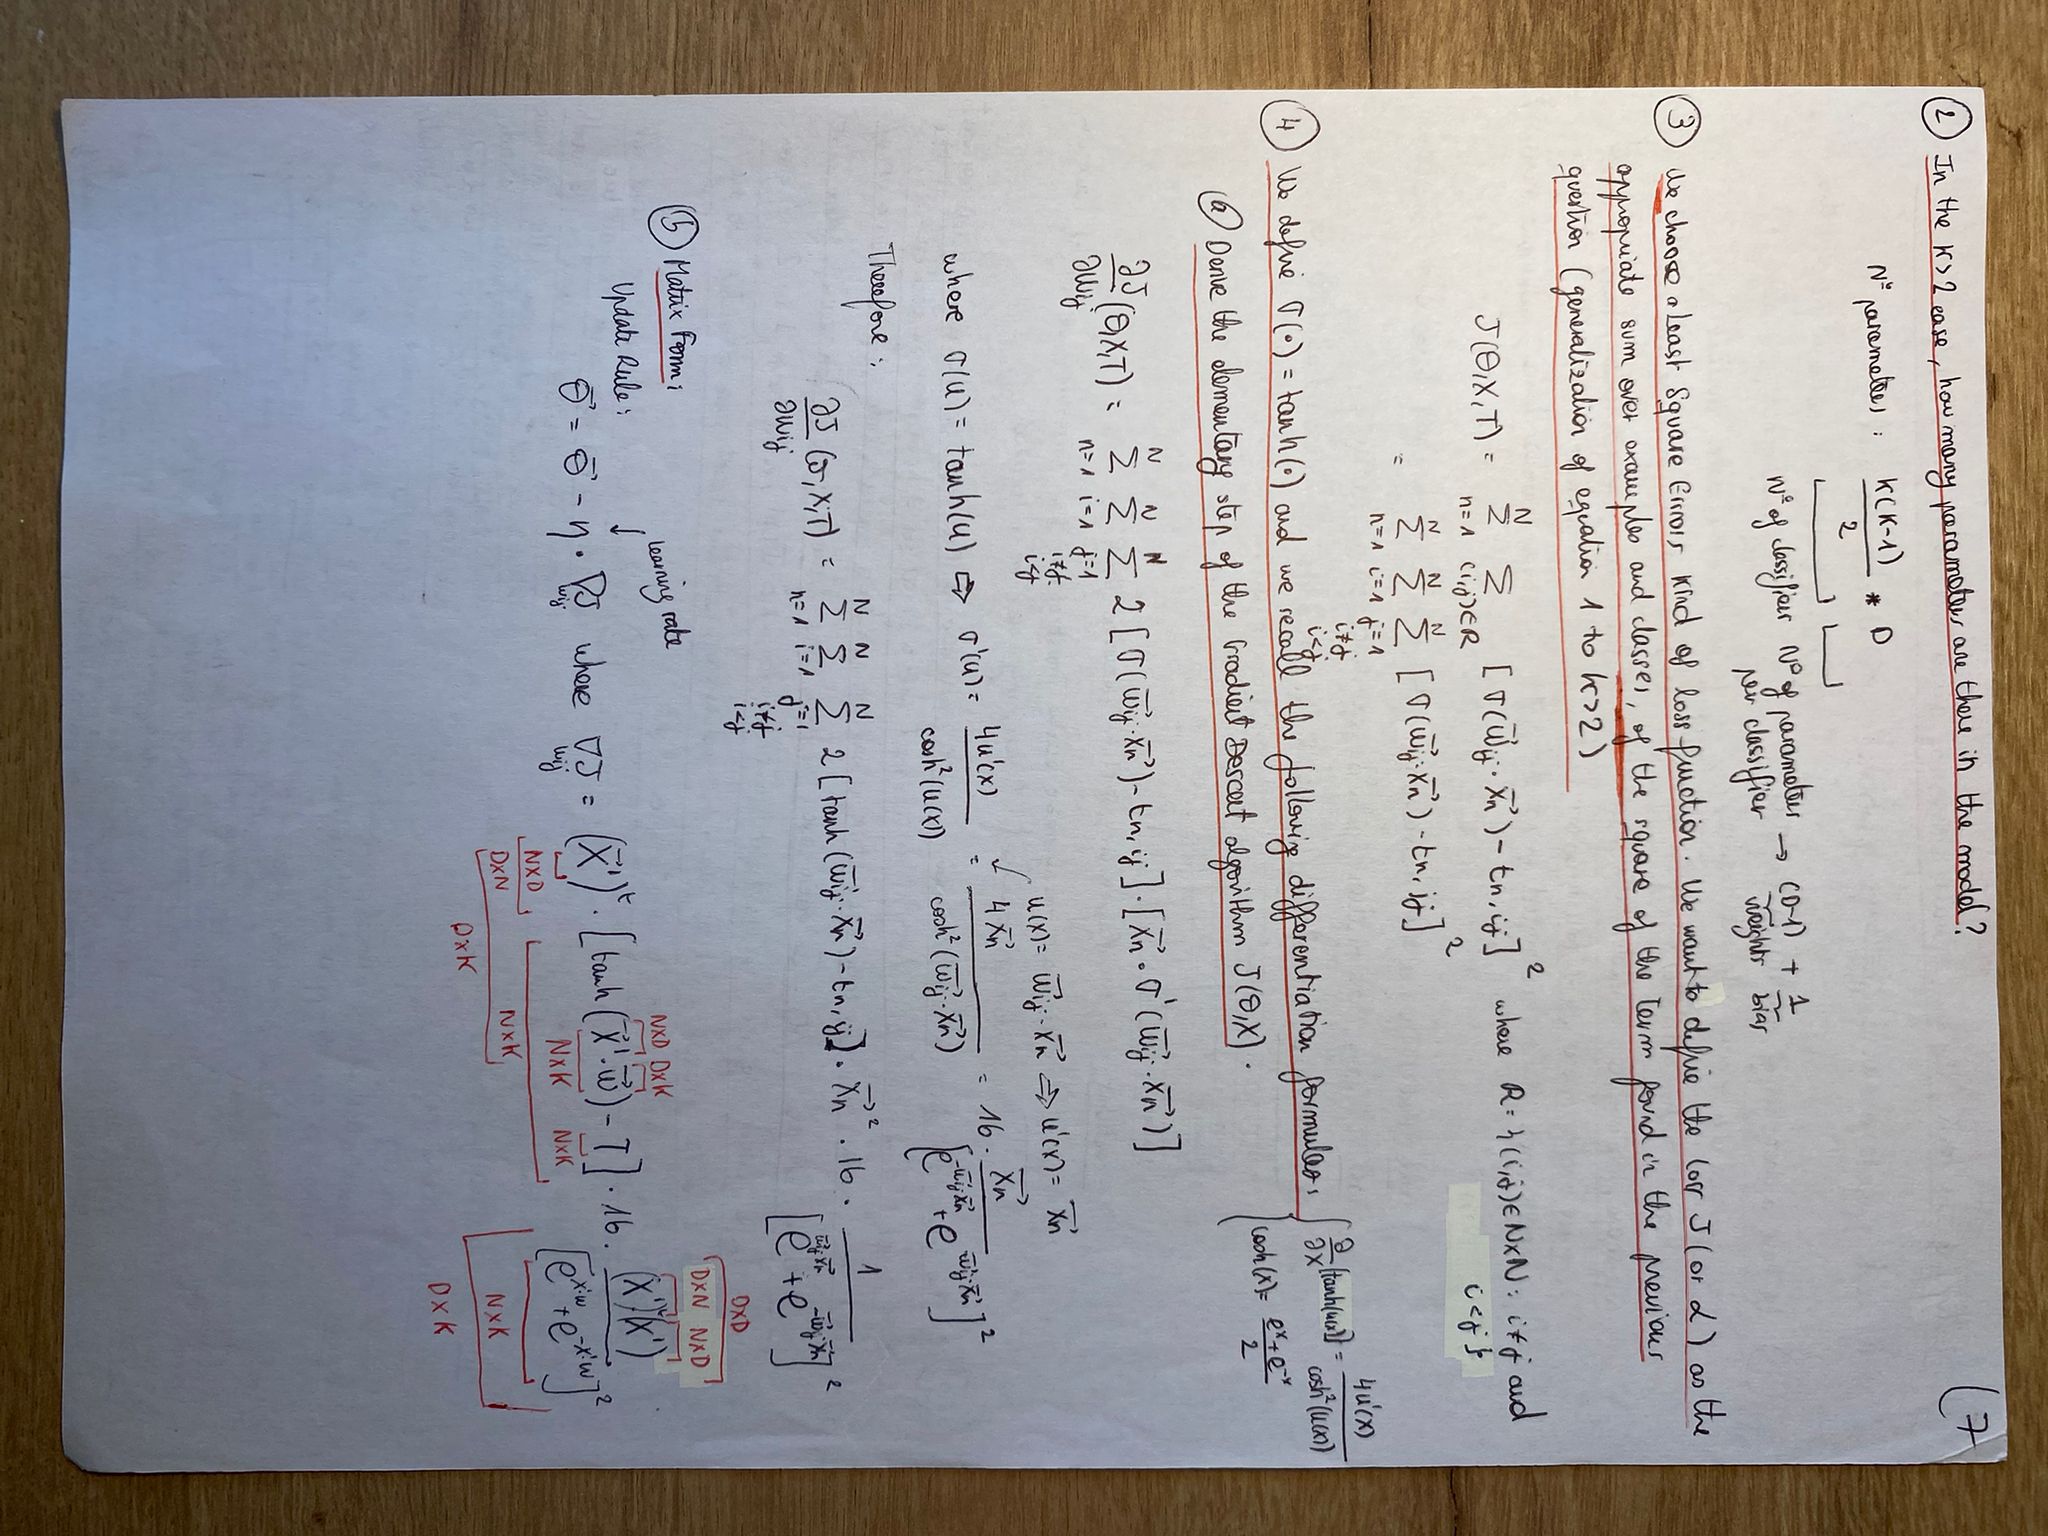 (7
② In the K>2 case, how many parameters are there in the model?
N° parameters : K(K-1)/2 * D
N° of classifiers N° of parameters per classifier → (D-1) weights + 1 bias
③ We choose a Least Square Errors kind of loss function. We want to define the loss J (or L) as the
appropriate sum over examples and classes, of the square of the term found in the previous
question (generalization of equation 1 to K>2)
J(Θ,X,T) = Σ_{n=1}^{N} Σ_{(i,j)∈R} [σ(w⃗ij · x⃗n) - tn,ij]² where R = {(i,j)∈N×N : i≠j and
i<j}
= Σ_{n=1}^{N} Σ_{i=1}^{N} Σ_{j=1, i≠j, i<j}^{N} [σ(w⃗ij · x⃗n) - tn,jj]²
④ We define σ(•) = tanh(•) and we recall the following differentiation formulas: { ∂/∂x [tanh(u(x))] = 4u'(x)/cosh²(u(x))
cosh(x) = (eˣ + e⁻ˣ)/2
ⓐ Derive the elementary step of the Gradient Descent algorithm J(Θ,X).
∂J/∂Wij (Θ,X,T) = Σ_{n=1}^{N} Σ_{i=1}^{N} Σ_{j=1, i≠j, i<j}^{N} 2 [σ(w⃗ij · x⃗n) - tn,ij] · [x⃗n · σ'(w⃗ij · x⃗n)]
u(x) = w⃗ij · x⃗n ⇒ u'(x) = x⃗n
where σ(u) = tanh(u) ⇒ σ'(u) = 4u'(x)/cosh²(u(x)) = 4x⃗n/cosh²(w⃗ij · x⃗n) = 16 · x⃗n/[e^{-w⃗ij·x⃗n} + e^{w⃗ij·x⃗n}]²
Therefore :
∂J/∂Wij (σ,X,T) = Σ_{n=1}^{N} Σ_{i=1}^{N} Σ_{j=1, i≠j, i<j}^{N} 2 [tanh(w⃗ij · x⃗n) - tn,ij] · x⃗n² · 16 · 1/[e^{w⃗ij·x⃗n} + e^{-w⃗ij·x⃗n}]²
⑤ Matrix Form:
learning rate
DxD
DxN NxD
NxD DxK
Update Rule:
Θ⃗ = Θ⃗ - η · ∇J_{wij} where ∇J_{wij} = (X⃗')ᵗ · [tanh(X⃗' · w⃗) - T] · 16 · (X')ᵗ(X')/[e^{X'·w} + e^{-X'·w}]²
NxD NxK NxK
DxN NxK NxK
DxK DxK